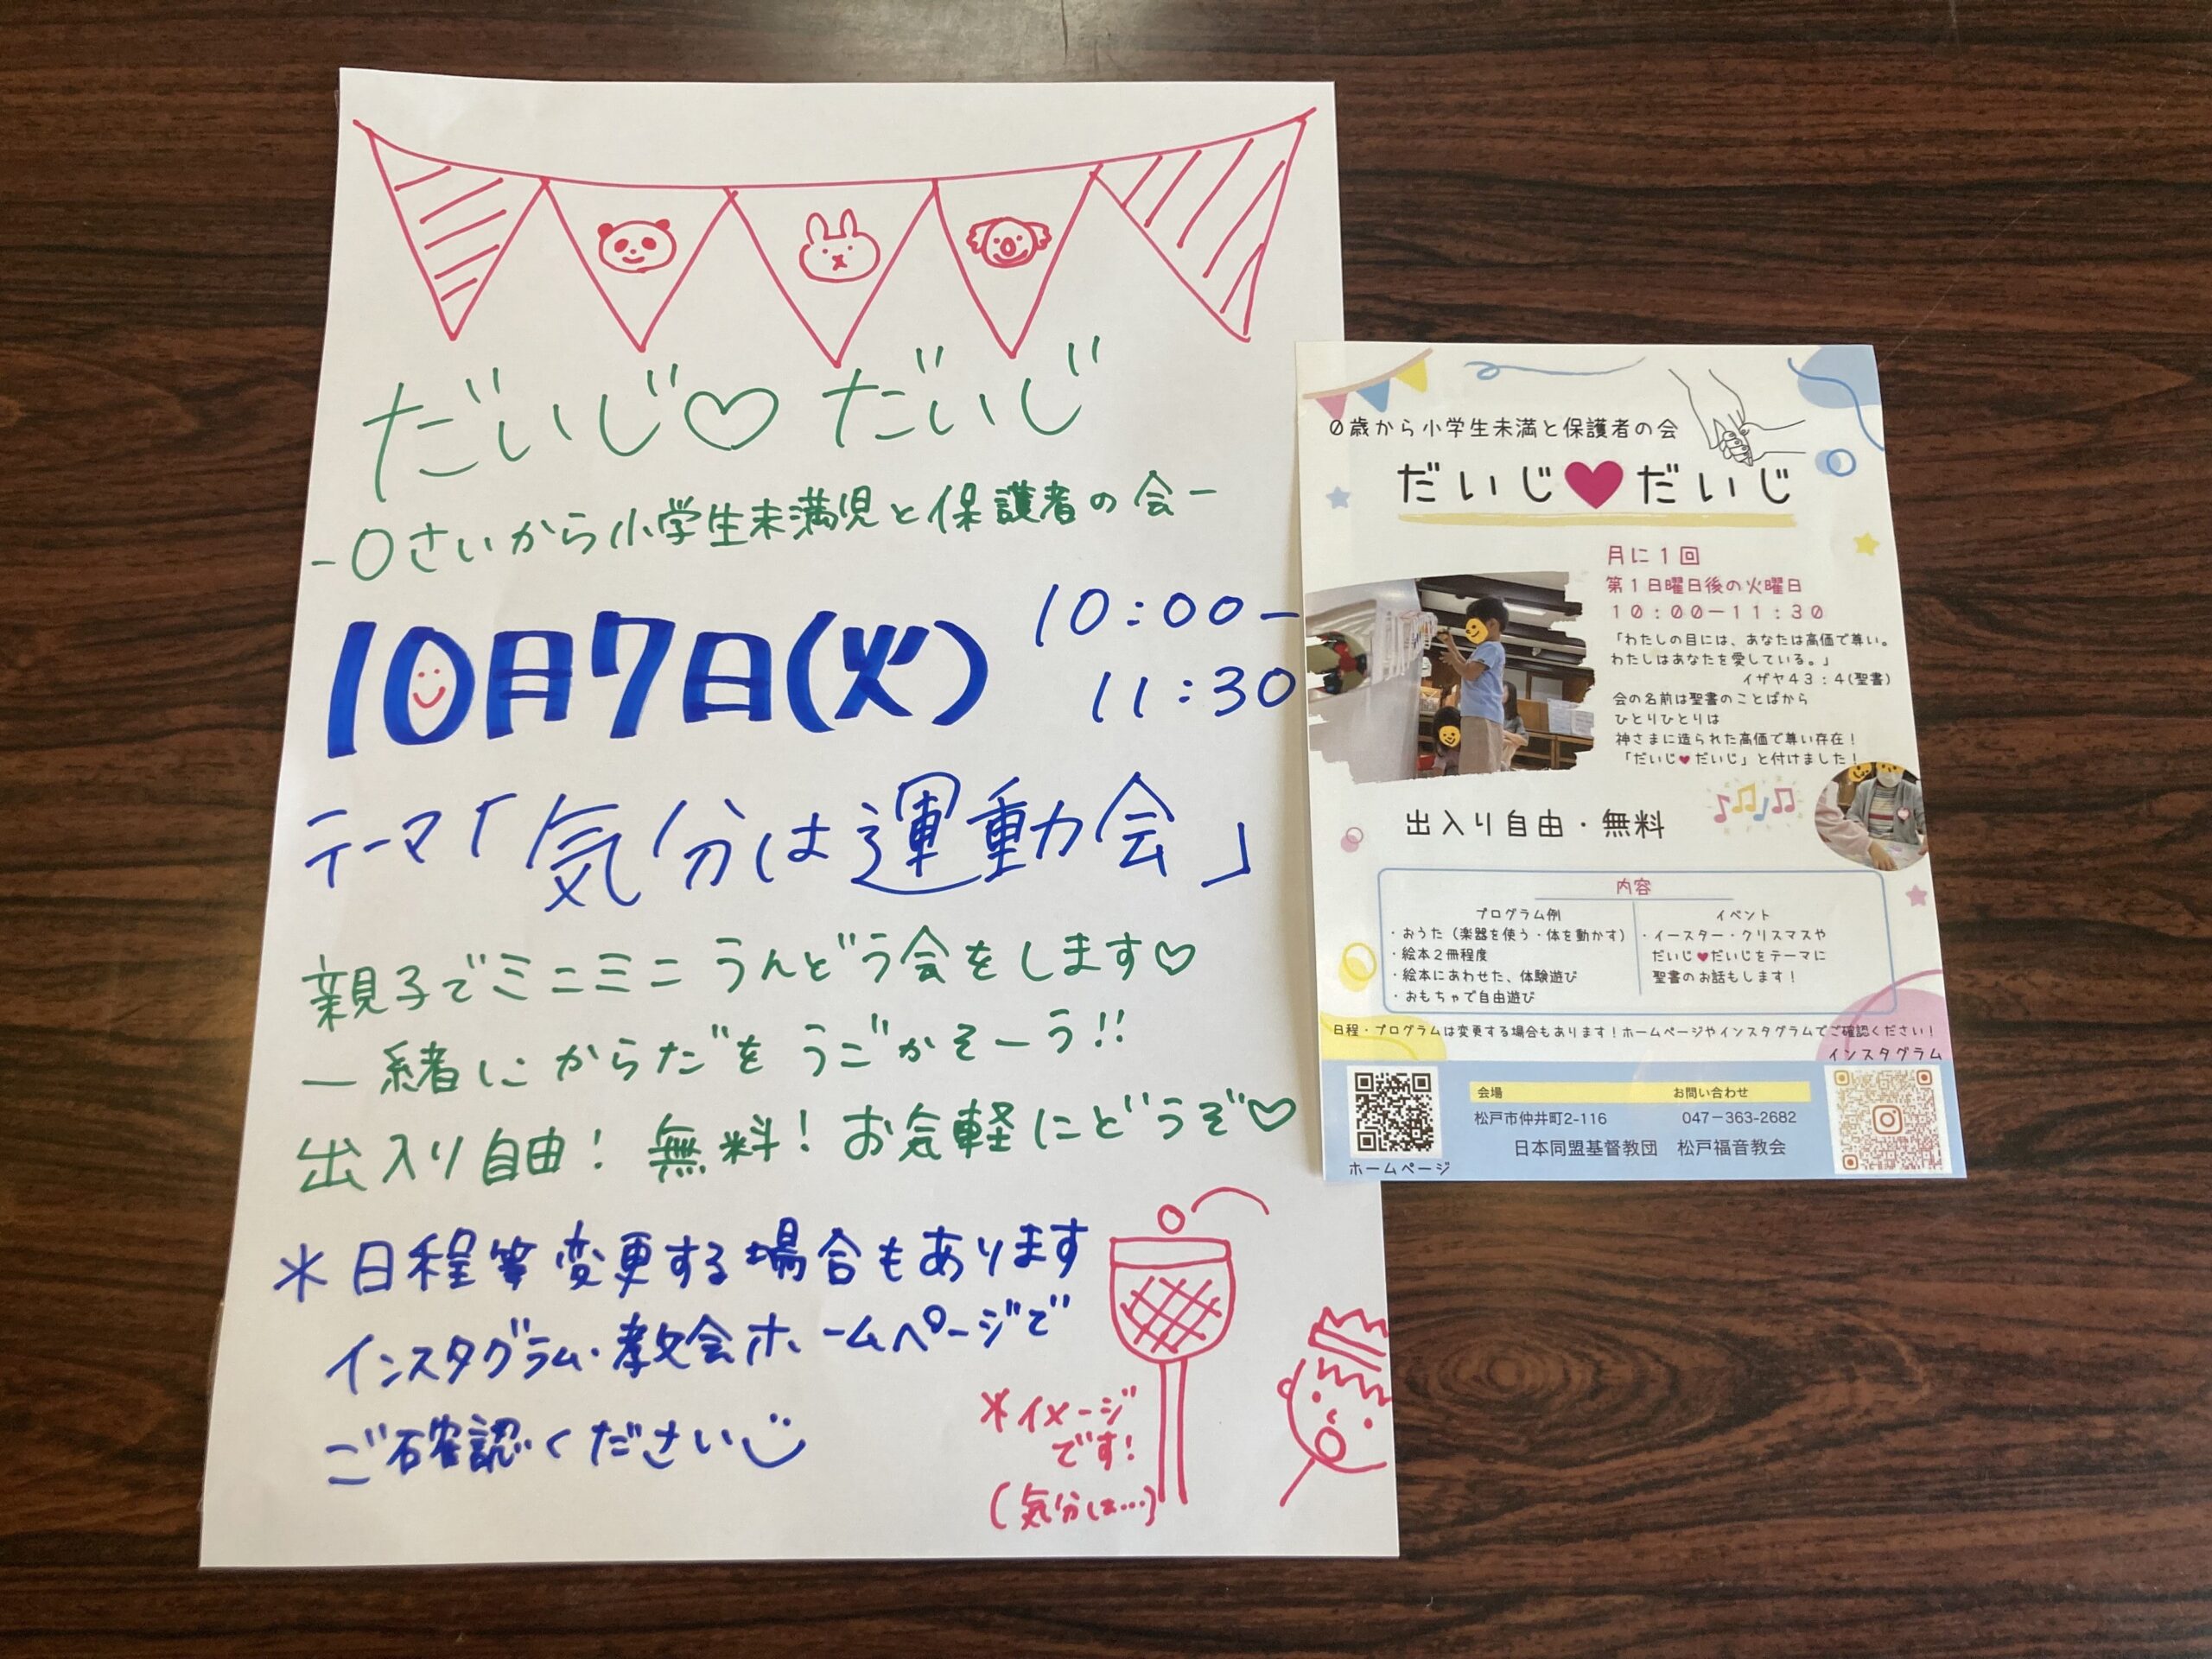 だいじ♡だいじ
-0さいから小学生未満児と保護者の会-
10月7日(火)
10:00-
11:30
テーマ「気分は運動会」
親子でミニミニうんどう会をします♡
一緒にからだをうごかそーう!!
出入り自由!無料!お気軽にどうぞ♡
*日程等変更する場合もあります
インスタグラム・教会ホームページで
ご確認ください
*イメージ
です!
(気分は…)
0歳から小学生未満と保護者の会
だいじ♥だいじ
月に1回
第1日曜日後の火曜日
10:00ー11:30
「わたしの目には、あなたは高価で尊い。
わたしはあなたを愛している。」
イザヤ43:4(聖書)
会の名前は聖書のことばから
ひとりひとりは
神さまに造られた高価で尊い存在!
「だいじ♥だいじ」と付けました!
出入り自由・無料
内容
プログラム例
・おうた(楽器を使う・体を動かす)
・絵本2冊程度
・絵本にあわせた、体験遊び
・おもちゃで自由遊び
イベント
・イースター・クリスマスや
だいじ♥だいじをテーマに
聖書のお話もします!
日程・プログラムは変更する場合もあります!ホームページやインスタグラムでご確認ください!
インスタグラム
会場
お問い合わせ
松戸市仲井町2-116
047ー363-2682
日本同盟基督教団 松戸福音教会
ホームページ